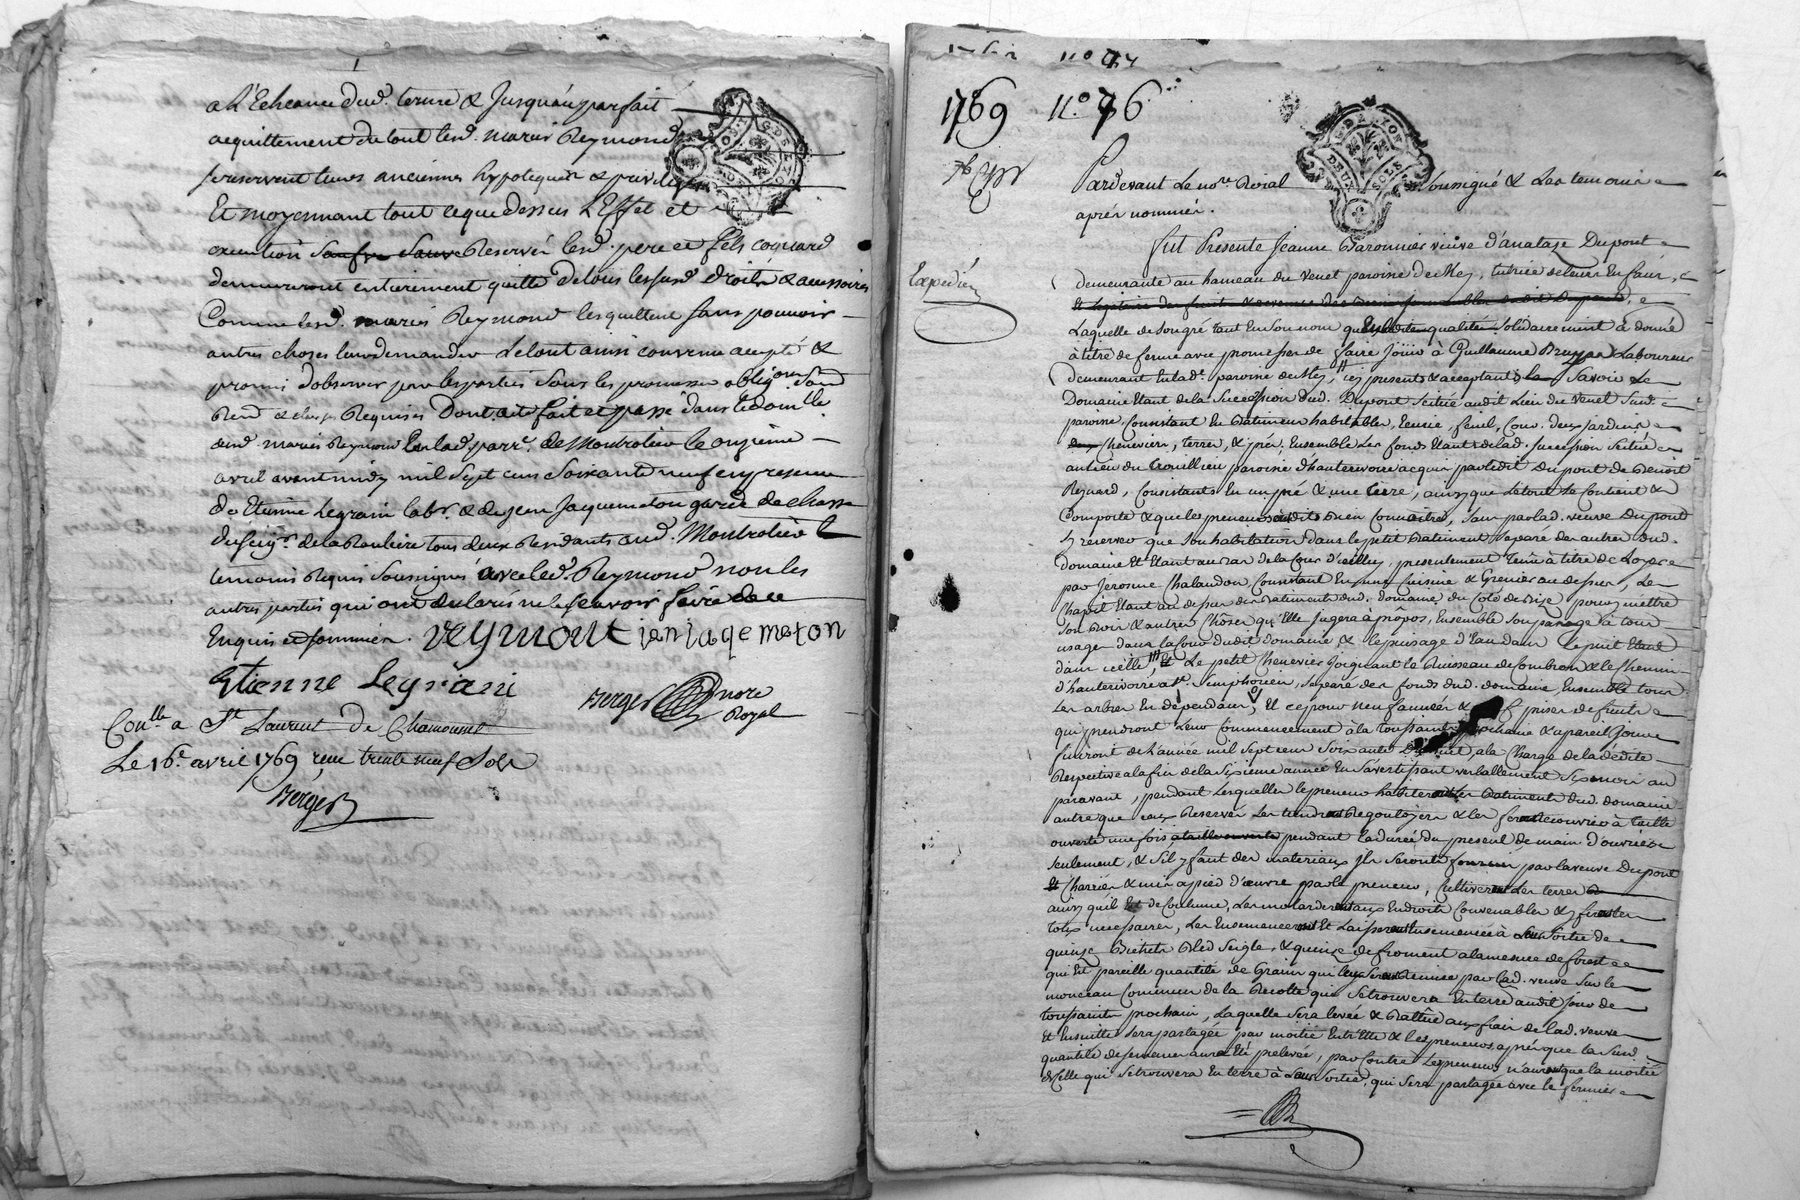 a L'Echeance dud. terme & Jusqu'au parfait
acquittement du tout lesd. mariés Reymond
se reservent leurs anciennes hypoteques & privileges
Et moyennant tout ce que dessus L'Effet et
execution Reservés lesd. pere et fils
demeureront entierement quitte de tous les susd. droits & accessoires
Comme lesd. mariés Reymond les quittent sans pouvoir
autres choses leurs demander Le tout ainsi convenu accepté &
promis d'observer par les parties sous les promesses oblig.ons
Rend & clauses Requises Dont acte fait et passé dans le dom.lle
desd. mariés Reymond En lad. parr.e de Montrotier le onzieme
avril avant midy mil sept cens soixante neuf en presence
de Etienne Legrain lab.r & de Jean Jaquemeton garde de chasse
du seig.r de la Rouliere tous deux Residants aud. Montrotier
temoins Requis Soussignés avec led. Reymond non les
autres parties qui ont declarés ne le scavoir faire de ce
Enquis et sommés. reymont jan jaqemeton
Etienne Legrain
Berger nore
Royal
Con.lle a St Laurent De Chamousset
Le 16e avril 1769 reçu trente neuf Sols
Berger
1769 n.o 76
GD. DE LION
DEUX SOLS
Pardevant Le no.re Roial Soussigné & Les temoins
après nommés.
Expedié
fut Presente Jeanne Baronnier veuve d'anataze Dupont
demeurante au hameau du venet paroisse de Mey, tutrice de leurs Enfans,
Laquelle de son gré tant En son nom qu'En lad. qualité solidairement a donné
à titre de ferme avec promesse de faire Jouir à Guillaume Laboureur
demeurant En lad. paroisse de Mey, icy present & acceptant Savoir Le
Domaine Etant de la Succession dud. Dupont Scitué audit Lieu du Venet Sud.
paroisse, Consistant En Batiment habitables, Ecurie, fenil, Cour, deux jardins
Chenevier, terres, & prés, Ensemble Les fonds Etants de lad. succession Scitué
au lieu du Trouillieu paroisse d'hauterivoire acquis par ledit Dupont de Benoit
Reynard, Consistants En un pré & une terre, ainsy que Le tout Se Contient &
Comporte & que le preneur a dit bien Connoitre, Sans par lad. veuve Dupont
S'y réserver que Son habitation dans le petit Batiment separé des autres dud.
domaine Et Etant au bas de la Cour d'icelluy, presentement tenu à titre de Loyer
par Jerosme Chalandon, Consistant En une Cuisine & Grenier au dessus, Le
Chapit Etant au dessus des Batiments dud. domaine du Coté de Bize pour y mettre
Son Bois & autres Choses qu'Elle Jugera à propos, Ensemble Son passage à tour
usage dans la Cour dudit domaine, & le puisage d'Eau dans le puit Etant
dans icelle Le petit Chenevier Joignant le Ruisseau de Combron & le Chemin
d'hauterivoire a St. Simphorien, séparé des fonds dud. domaine Ensemble tous
Les arbres En dependans, Et ce pour neuf années & prises de fruits
qui prendront Leur Commencement à la toussaint prochaine & a pareil Jour
finiront de L'année mil sept cent Soixante Dix huit, a la Charge de la dédite
Respective a la fin de la Sixieme année En S'avertissant verballement Six mois au
paravant, pendant lesquelles le preneur habitera les Batiments dud. domaine
autre que ceux Reservés Les tiendra Regoutoyés & les fera recouvrir à taille
ouverte une fois pendant la durée du present de main d'ouvrier
seulement, & S'il y faut des materiaux Ils Seront fournis par la veuve Dupont
Charriés & mis a pied d'œuvre par le preneur, Cultivera Les terres
ainsy qu'il Est de Coutume, Les molardera aux Endroits Convenables & y fera les
tous necessaires, Les Ensemencera Et Laissera Ensemencés à sa Sortie de
quinze Bichets Bled Seigle, & quinze de froment a la mesure de forest
qui Est pareille quantité de Grains qui luy Sera Remise par lad. veuve Sur le
monceau Commun de la Recolte qui Se trouvera En terre audit jour de
toussaints prochain, Laquelle Sera levée & Battüe aux frais de lad. veuve
Et Ensuitte Sera partagée par moitié Entr'Elle & le preneur après que la Susd.
quantité de semence aura Eté prelevée, par Contre le preneur n'aura que la moitié
de Celle qui Se trouvera En terre à Sa Sortie, qui Sera partagée avec le fermier